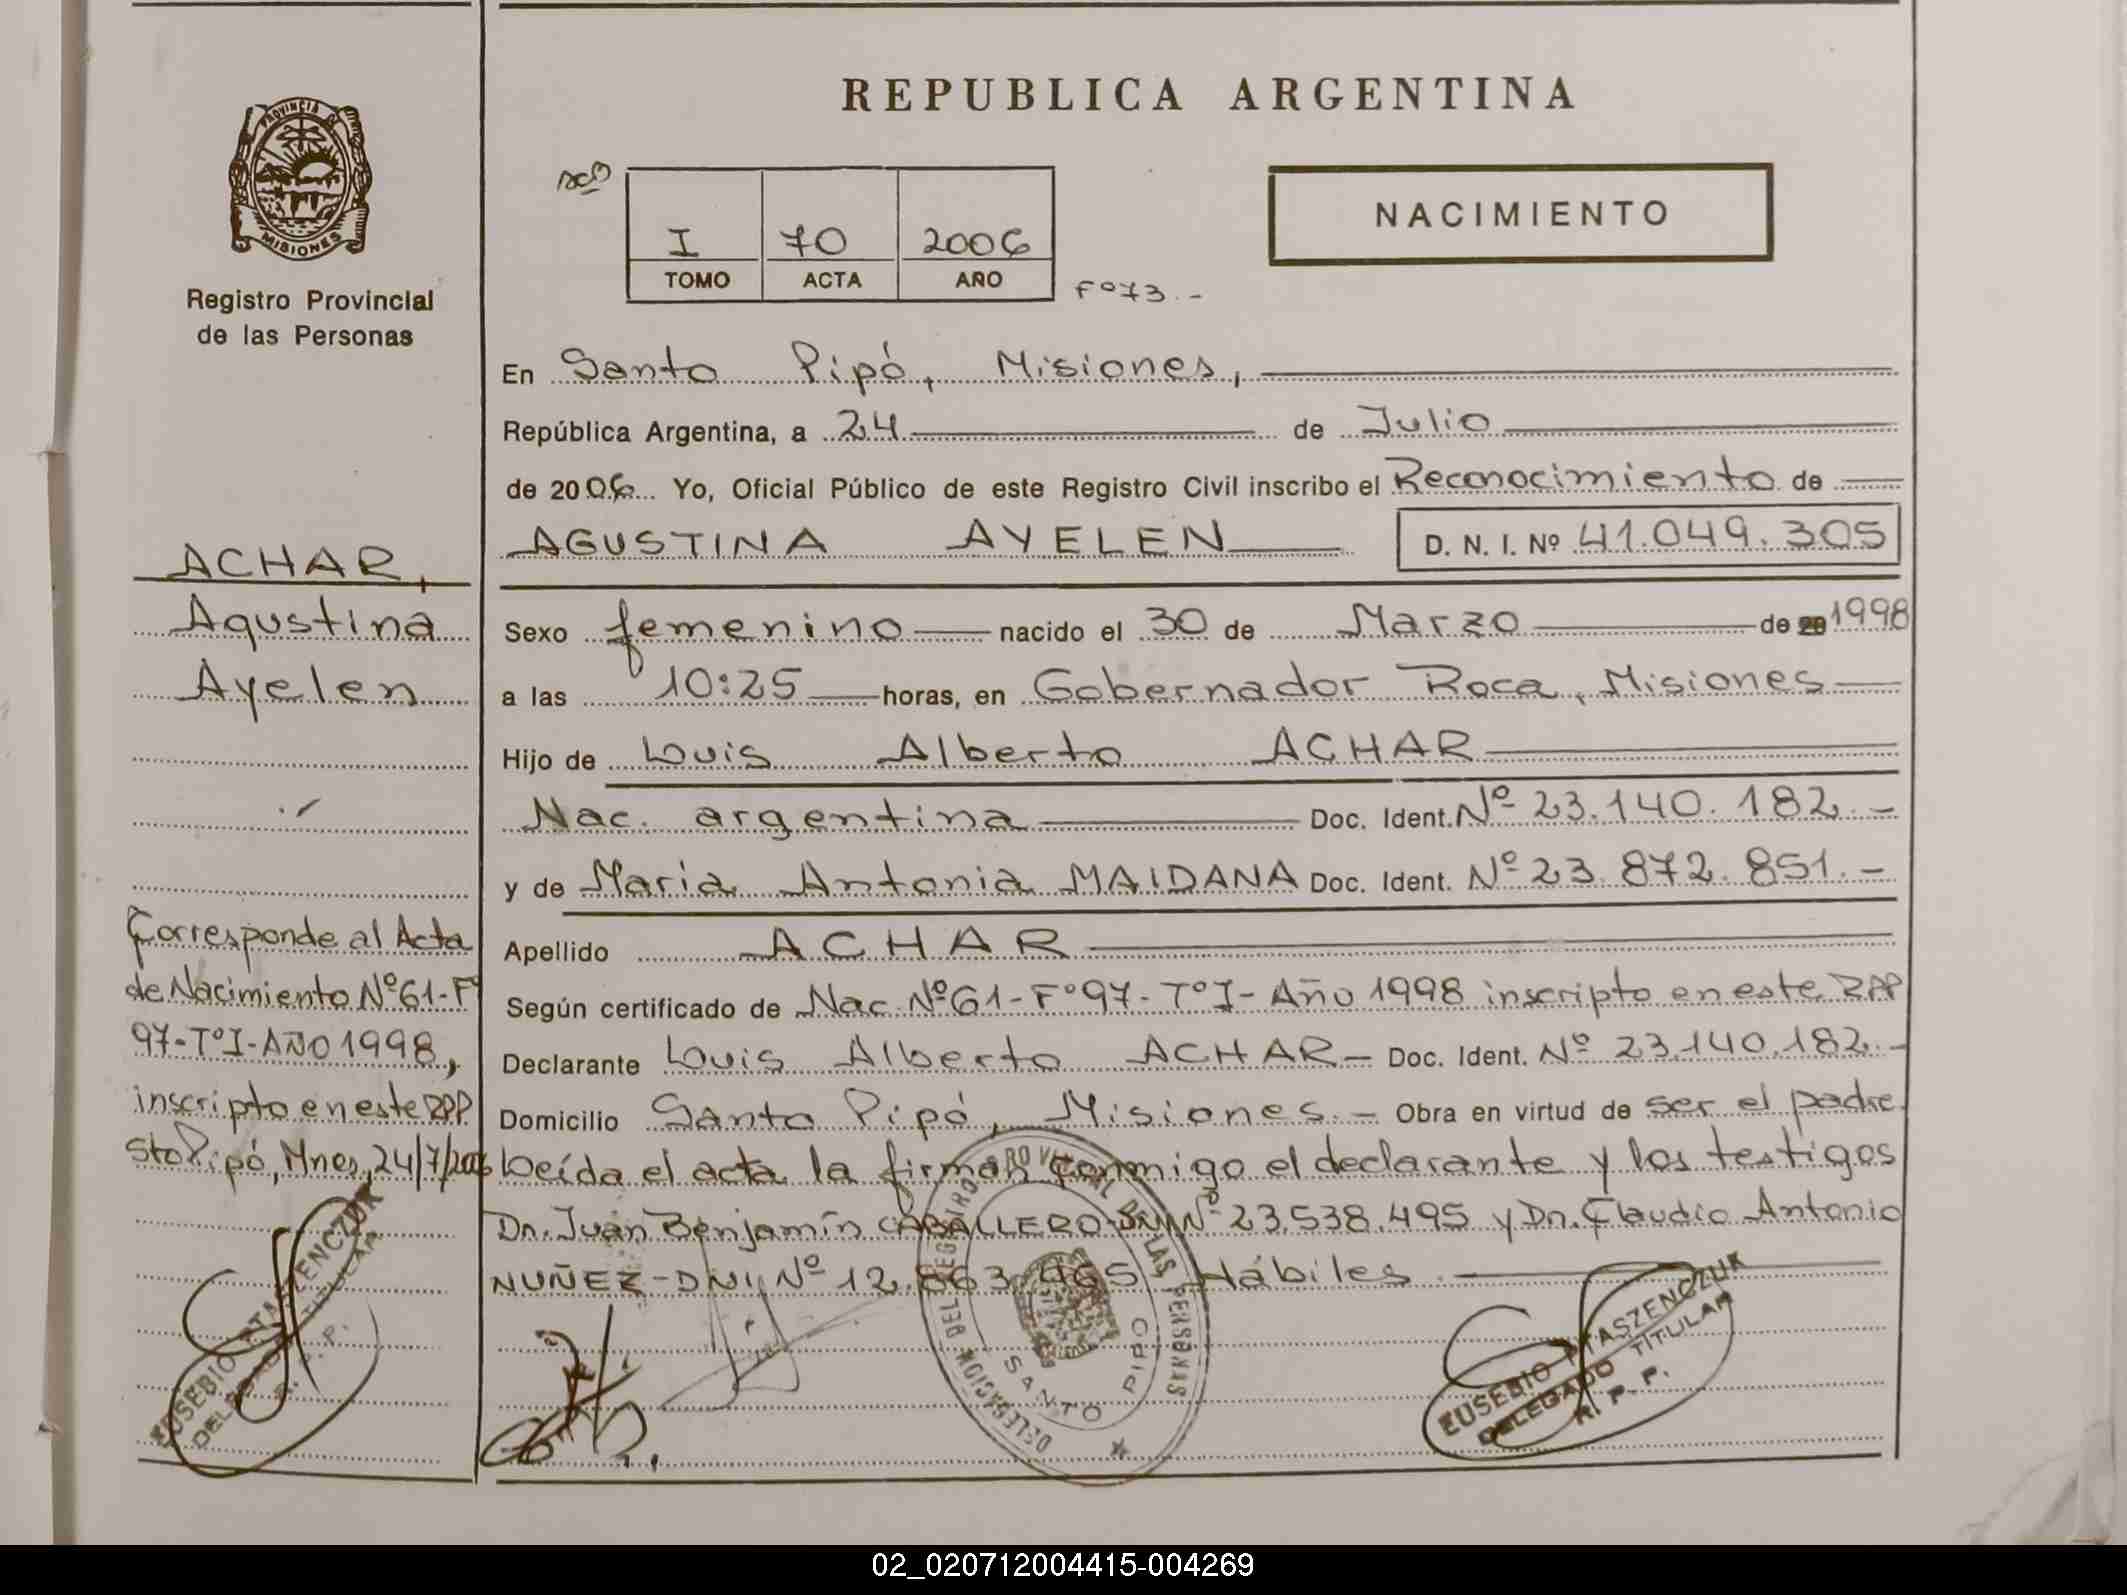 REPUBLICA ARGENTINA
PROVINCIA DE
MISIONES
Registro Provincial
de las Personas
I 70 2006
TOMO ACTA AÑO
Fº73.-
NACIMIENTO
En Santo Pipó, Misiones,
República Argentina, a 24 de Julio
de 2006 Yo, Oficial Público de este Registro Civil inscribo el Reconocimiento de
AGUSTINA AYELEN D. N. I. Nº 41.049.305
Sexo femenino nacido el 30 de Marzo de 1998
a las 10:25 horas, en Gobernador Roca, Misiones
Hijo de Luis Alberto ACHAR
Nac. argentina Doc. Ident. Nº 23.140.182.-
y de Maria Antonia MAIDANA Doc. Ident. Nº 23.872.851.-
Apellido ACHAR
Según certificado de Nac. Nº61-Fº97-TºI-Año 1998 inscripto en este RPP
Declarante Luis Alberto ACHAR- Doc. Ident. Nº 23.140.182.-
Domicilio Santo Pipó, Misiones.- Obra en virtud de ser el padre.
Leída el acta la firman conmigo el declarante y los testigos
Dn. Juan Benjamín CABALLERO-DNI Nº 23.538.495 y Dn. Claudio Antonio
NUÑEZ-DNI Nº 12.863.465 Hábiles.
ACHAR,
Agustina
Ayelen
Corresponde al Acta
de Nacimiento Nº61-Fº
97-TºI-AÑO 1998,
inscripto en este RPP
Sto Pipó, Mnes, 24/7/2006
EUSEBIO PTASZENCZUK
DELEGADO TITULAR
R. P. P.
DELEGACION DEL REGISTRO PROVINCIAL DE LAS PERSONAS
SANTO PIPO
EUSEBIO PTASZENCZUK
DELEGADO TITULAR
R. P. P.
02_020712004415-004269